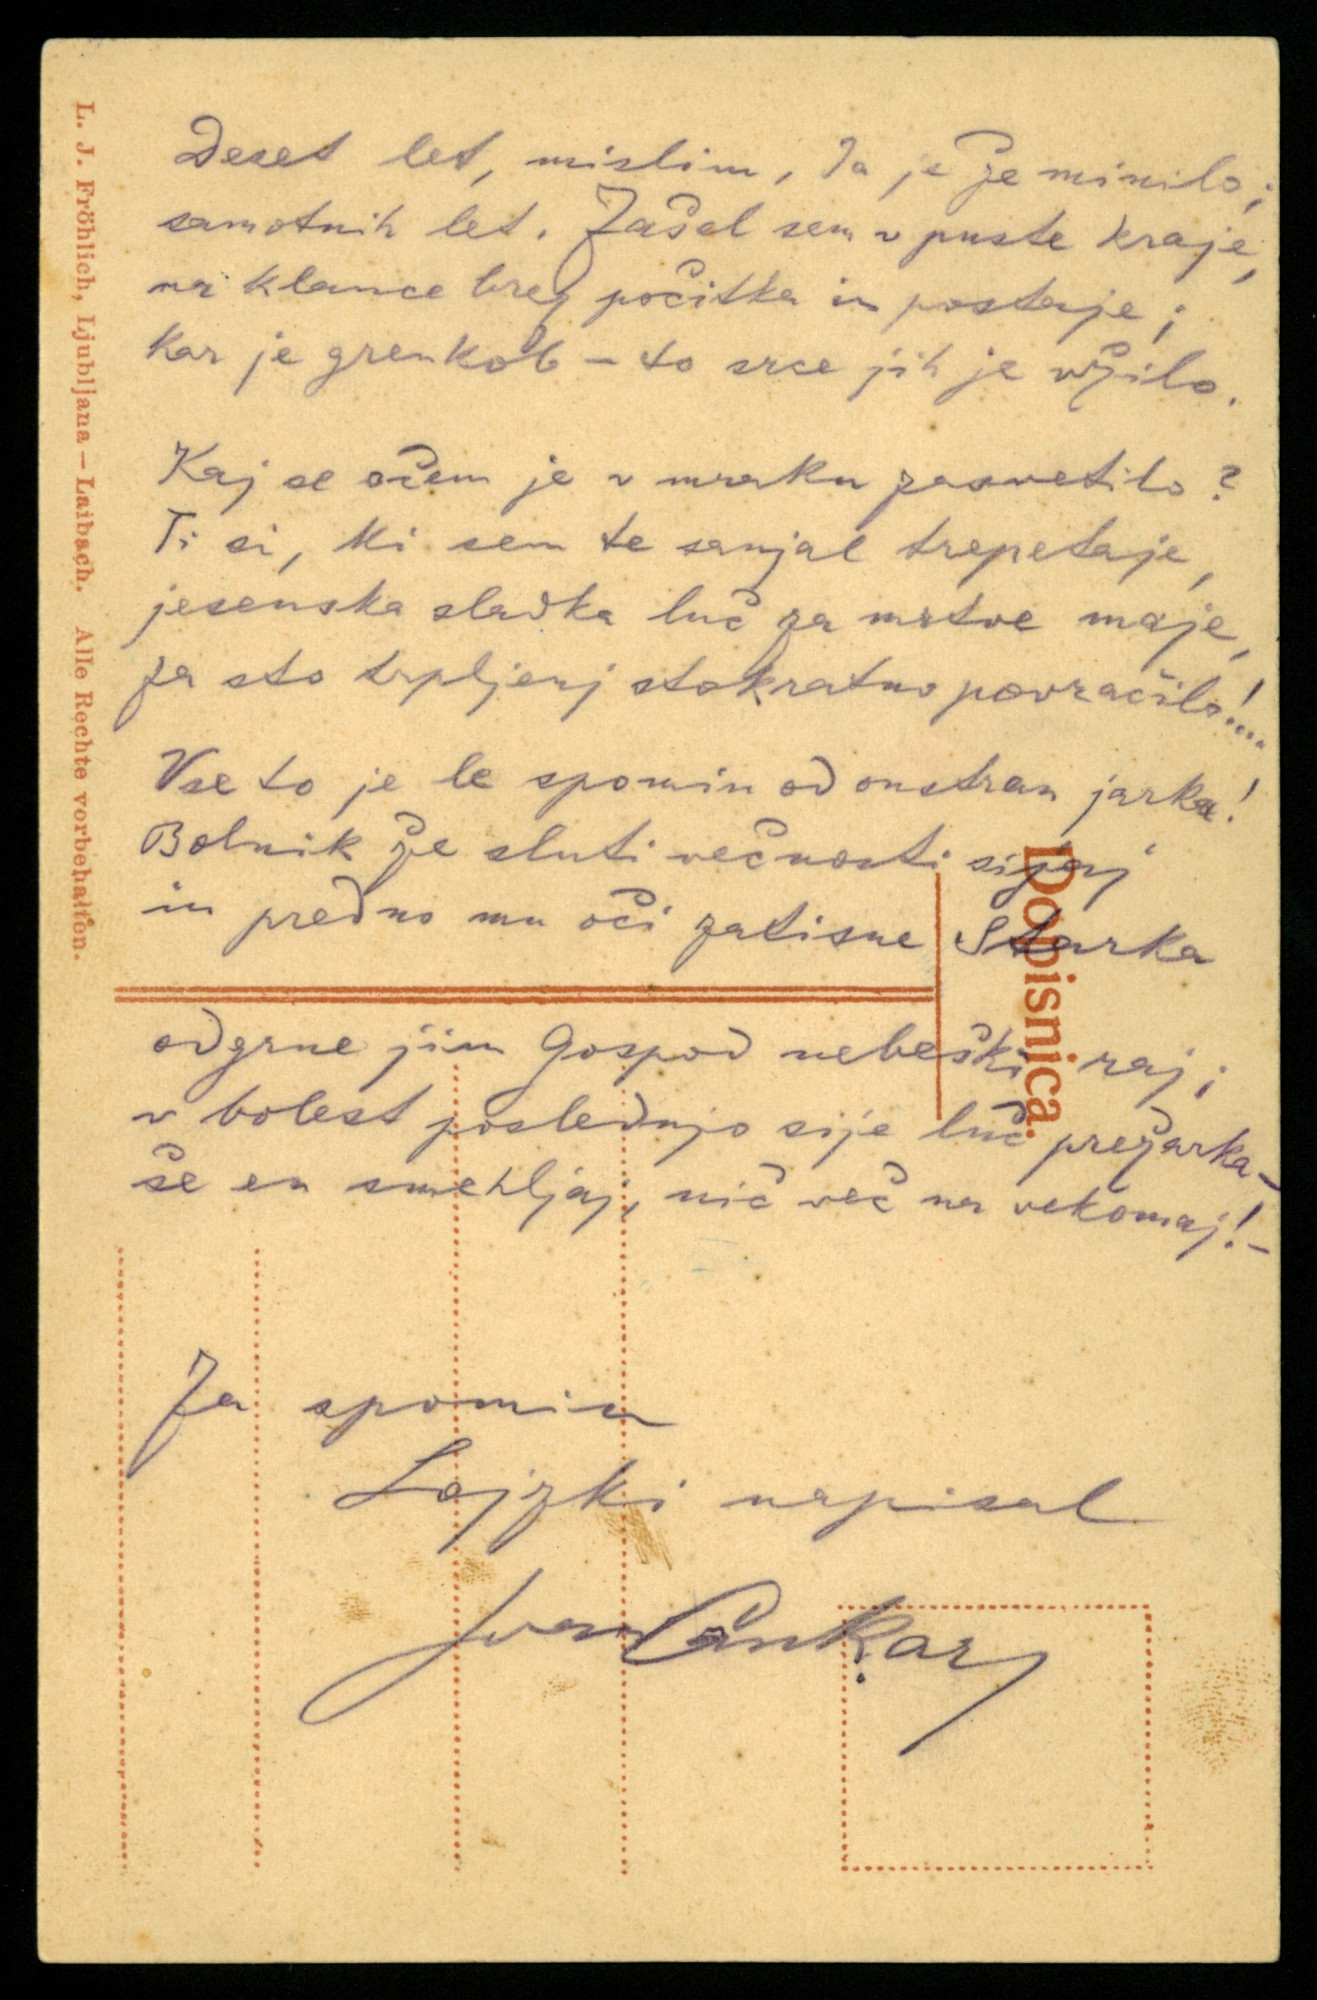 Deset let, mislim, da je že minilo;
samotnih let. Zašel sem v puste kraje,
na klance brez počitka in postaje;
kar je grenkob – to srce jih je užilo.
Kaj se očem je v mraku zasvetilo?
Ti si, ki sem te sanjal trepetaje,
jesenska sladka luč za mrtve maje,
za sto trpljenj stokratno povračilo!...
Vse to je le spomin od onstran jarka!
Bolnik že sluti večnosti sijaj
in predno mu oči zatisne Starka
odgrne jim Gospod nebeški raj;
v bolest poslednjo sije luč prežarka –
še en smehljaj, nič več na vekomaj! –
Za spomin
Lojzki napisal
Ivan Cankar
Dopisnica.
L. J. Fröhlich, Ljubljana – Laibach. Alle Rechte vorbehalten.